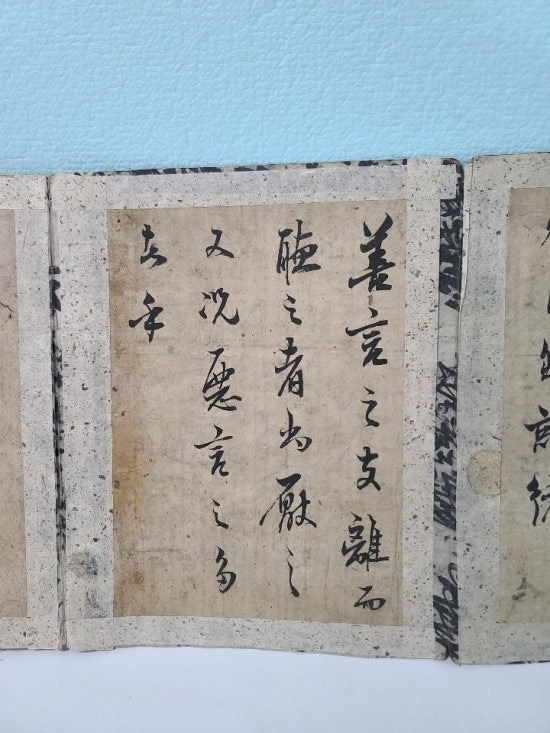 善言之支離而
聽之者尚厭之
又况惡言之多
者乎